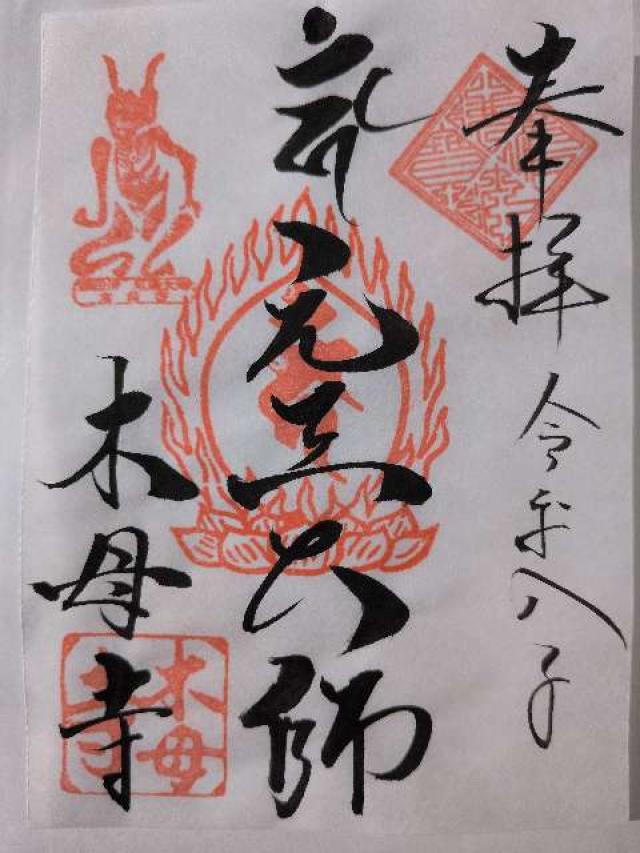 奉拝
令和八年
元三大師
木母寺
木母